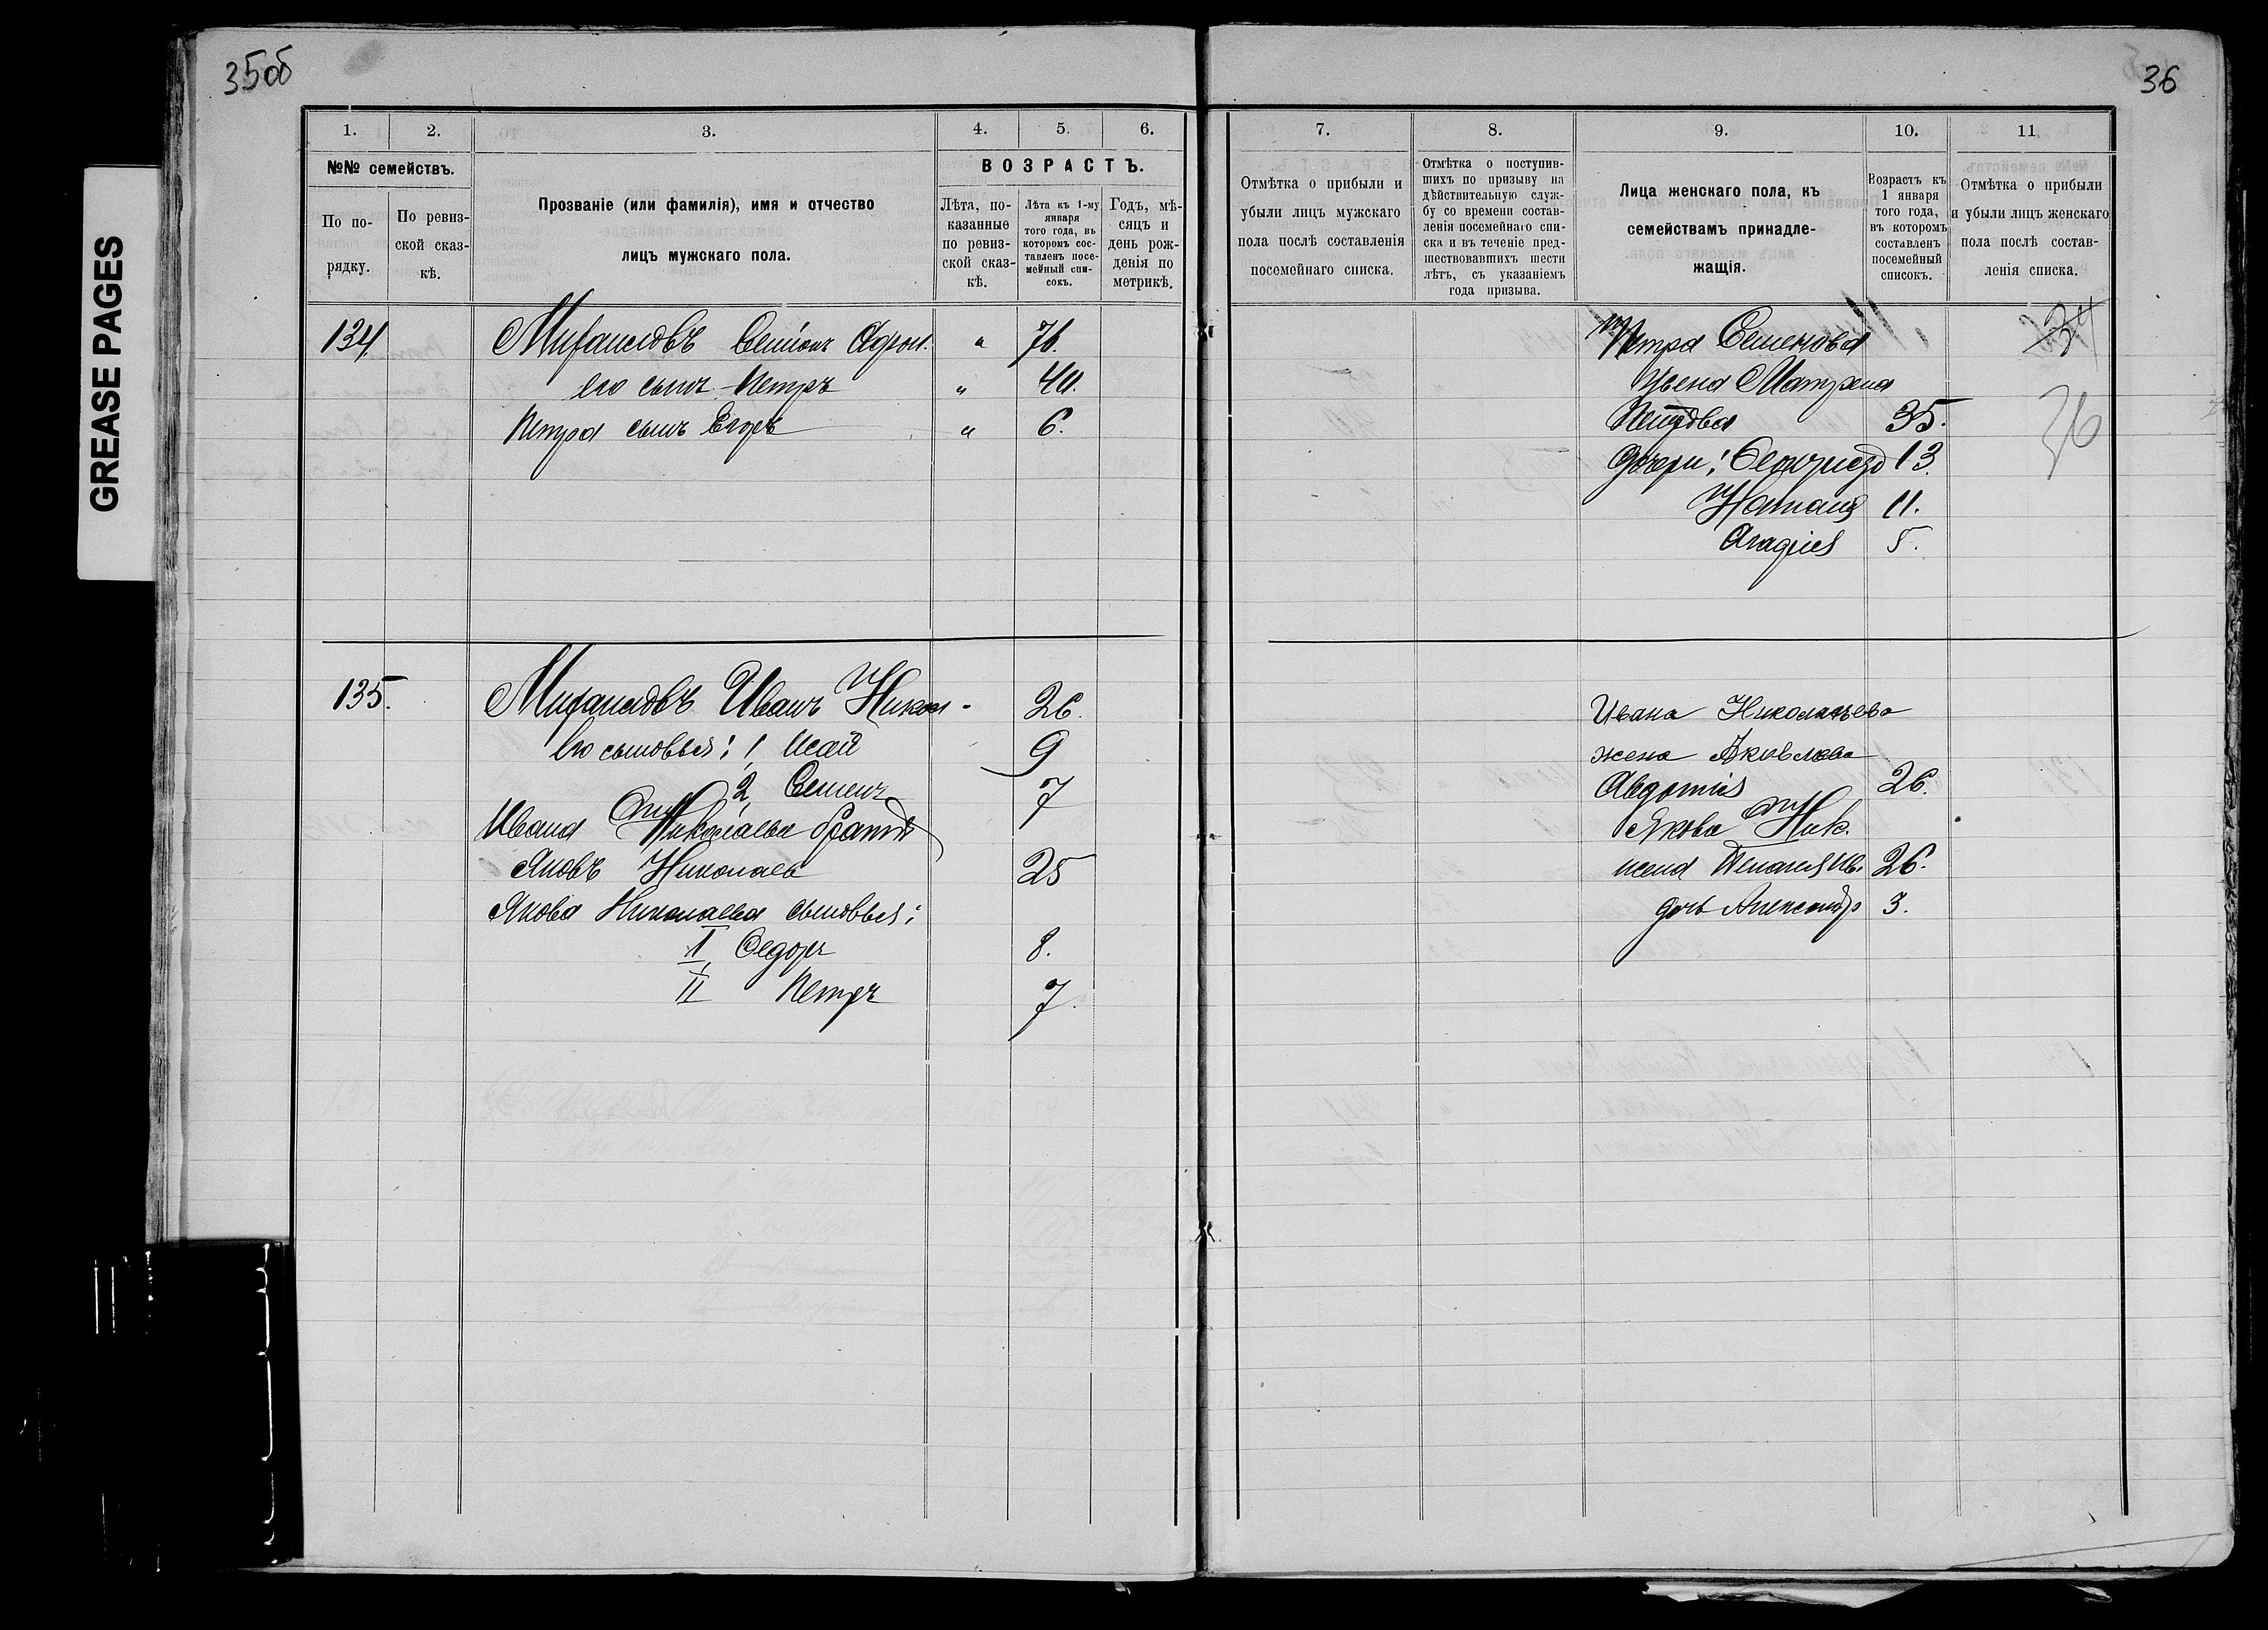 35об
36
GREASE PAGES
1.
2.
3.
4.
5.
6.
№№ семействъ.
По по-
рядку.
По ревиз-
ской сказ-
кѣ.
Прозваніе (или фамилія), имя и отчество
лицъ мужскаго пола.
ВОЗРАСТЪ.
Лѣта, по-
казанные
по ревиз-
ской сказ-
кѣ.
Лѣта къ 1-му
января
того года, въ
которомъ сос-
тавленъ посе-
мейный спи-
сокъ.
Годъ, мѣ-
сяцъ и
день рож-
денія по
метрикѣ.
134
Михаиловъ Семіонъ
" 76.
его сынъ Петръ " 40.
Петра сынъ Егоръ " 6.
135.
Михаиловъ Иванъ Никол- 26.
Его сыновья: 1, Исай 9
2, Семенъ 7
Ивана Николаева братъ
Яковъ Николаев 25
Якова Николаева сыновья:
I, Федоръ 8.
II Петръ 7.
7.
8.
9.
10.
11.
Отмѣтка о прибыли и
убыли лицъ мужскаго
пола послѣ составленія
посемейнаго списка.
Отмѣтка о поступив-
шихъ по призыву на
дѣйствительную служ-
бу со времени состав-
ленія посемейнаго спи-
ска и въ теченіе пред-
шествовавшихъ шести
лѣтъ, съ указаніемъ
года призыва.
Лица женскаго пола, къ
семействамъ принадле-
жащія.
Возрастъ къ
1 января
того года,
въ которомъ
составленъ
посемейный
списокъ.
Отмѣтка о прибыли
и убыли лицъ женскаго
пола послѣ состав-
ленія списка.
Петра Семенова
жена Матрена
Петрова 35.
дочери: 13.
11.
5.
36
Ивана Николаева
жена Яковлева
Авдотія 26.
Якова Ник.
жена Пелагея Ив. 26.
дочь Александр 3.